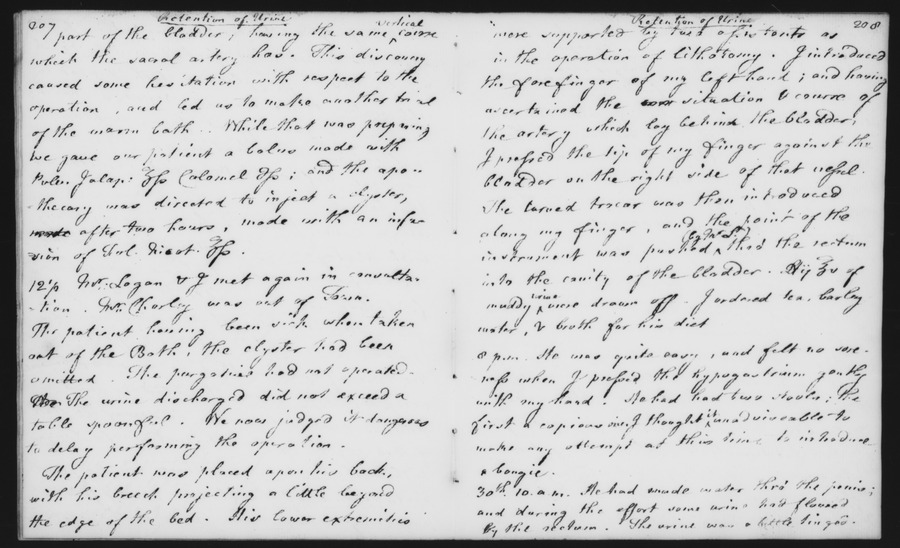 207 Retention of Urine
part of the bladder; having the same vertical course
which the sacral artery has. This discovery
caused some hesitation with respect to the
operation, and led us to make another trial
of the warm bath. While that was preparing
we gave our patient a bolus made with
Pulv. Jalap: ℥ss Calomel ℈ss; and the apo-
thecary was directed to inject a clyster,
after two hours, made with an infu-
sion of Fol. Nicot. ℥ss.
12½ Mr. Logan & I met again in consulta-
tion. Mr. Chorley was out of Town.
The patient having been sick when taken
out of the Bath, the clyster had been
omitted. The purgatives had not operated.
The urine discharged did not exceed a
table spoonful. We now judged it dangerous
to delay performing the operation.
The patient was placed upon his back,
with his breech projecting a little beyond
the edge of the bed. His lower extremities
Retention of Urine 208
were supported by two assistants as
in the operation of Lithotomy. I introduced
the forefinger of my left hand; and having
ascertained the situation & course of
the artery which lay behind the bladder,
I pressed the tip of my finger against the
bladder on the right side of that vessel.
The curved trocar was then introduced
along my finger, and the point of the
instrument was pushed thro' the rectum
into the cavity of the bladder. ℥v of
muddy urine were drawn off. I ordered tea, barley
water, & broth for his diet
8 p.m. He was quite easy, and felt no sore-
ness when I pressed the hypogastrium gently
with my hand. He had had two stools; the
first a copious one. I thought it unadviseable to
make any attempt at this time to introduce
a bougie.
30th. 10. a.m. He had made water thro' the penis;
and during the effort some urine had flowed
by the rectum. The urine was a little tinged.